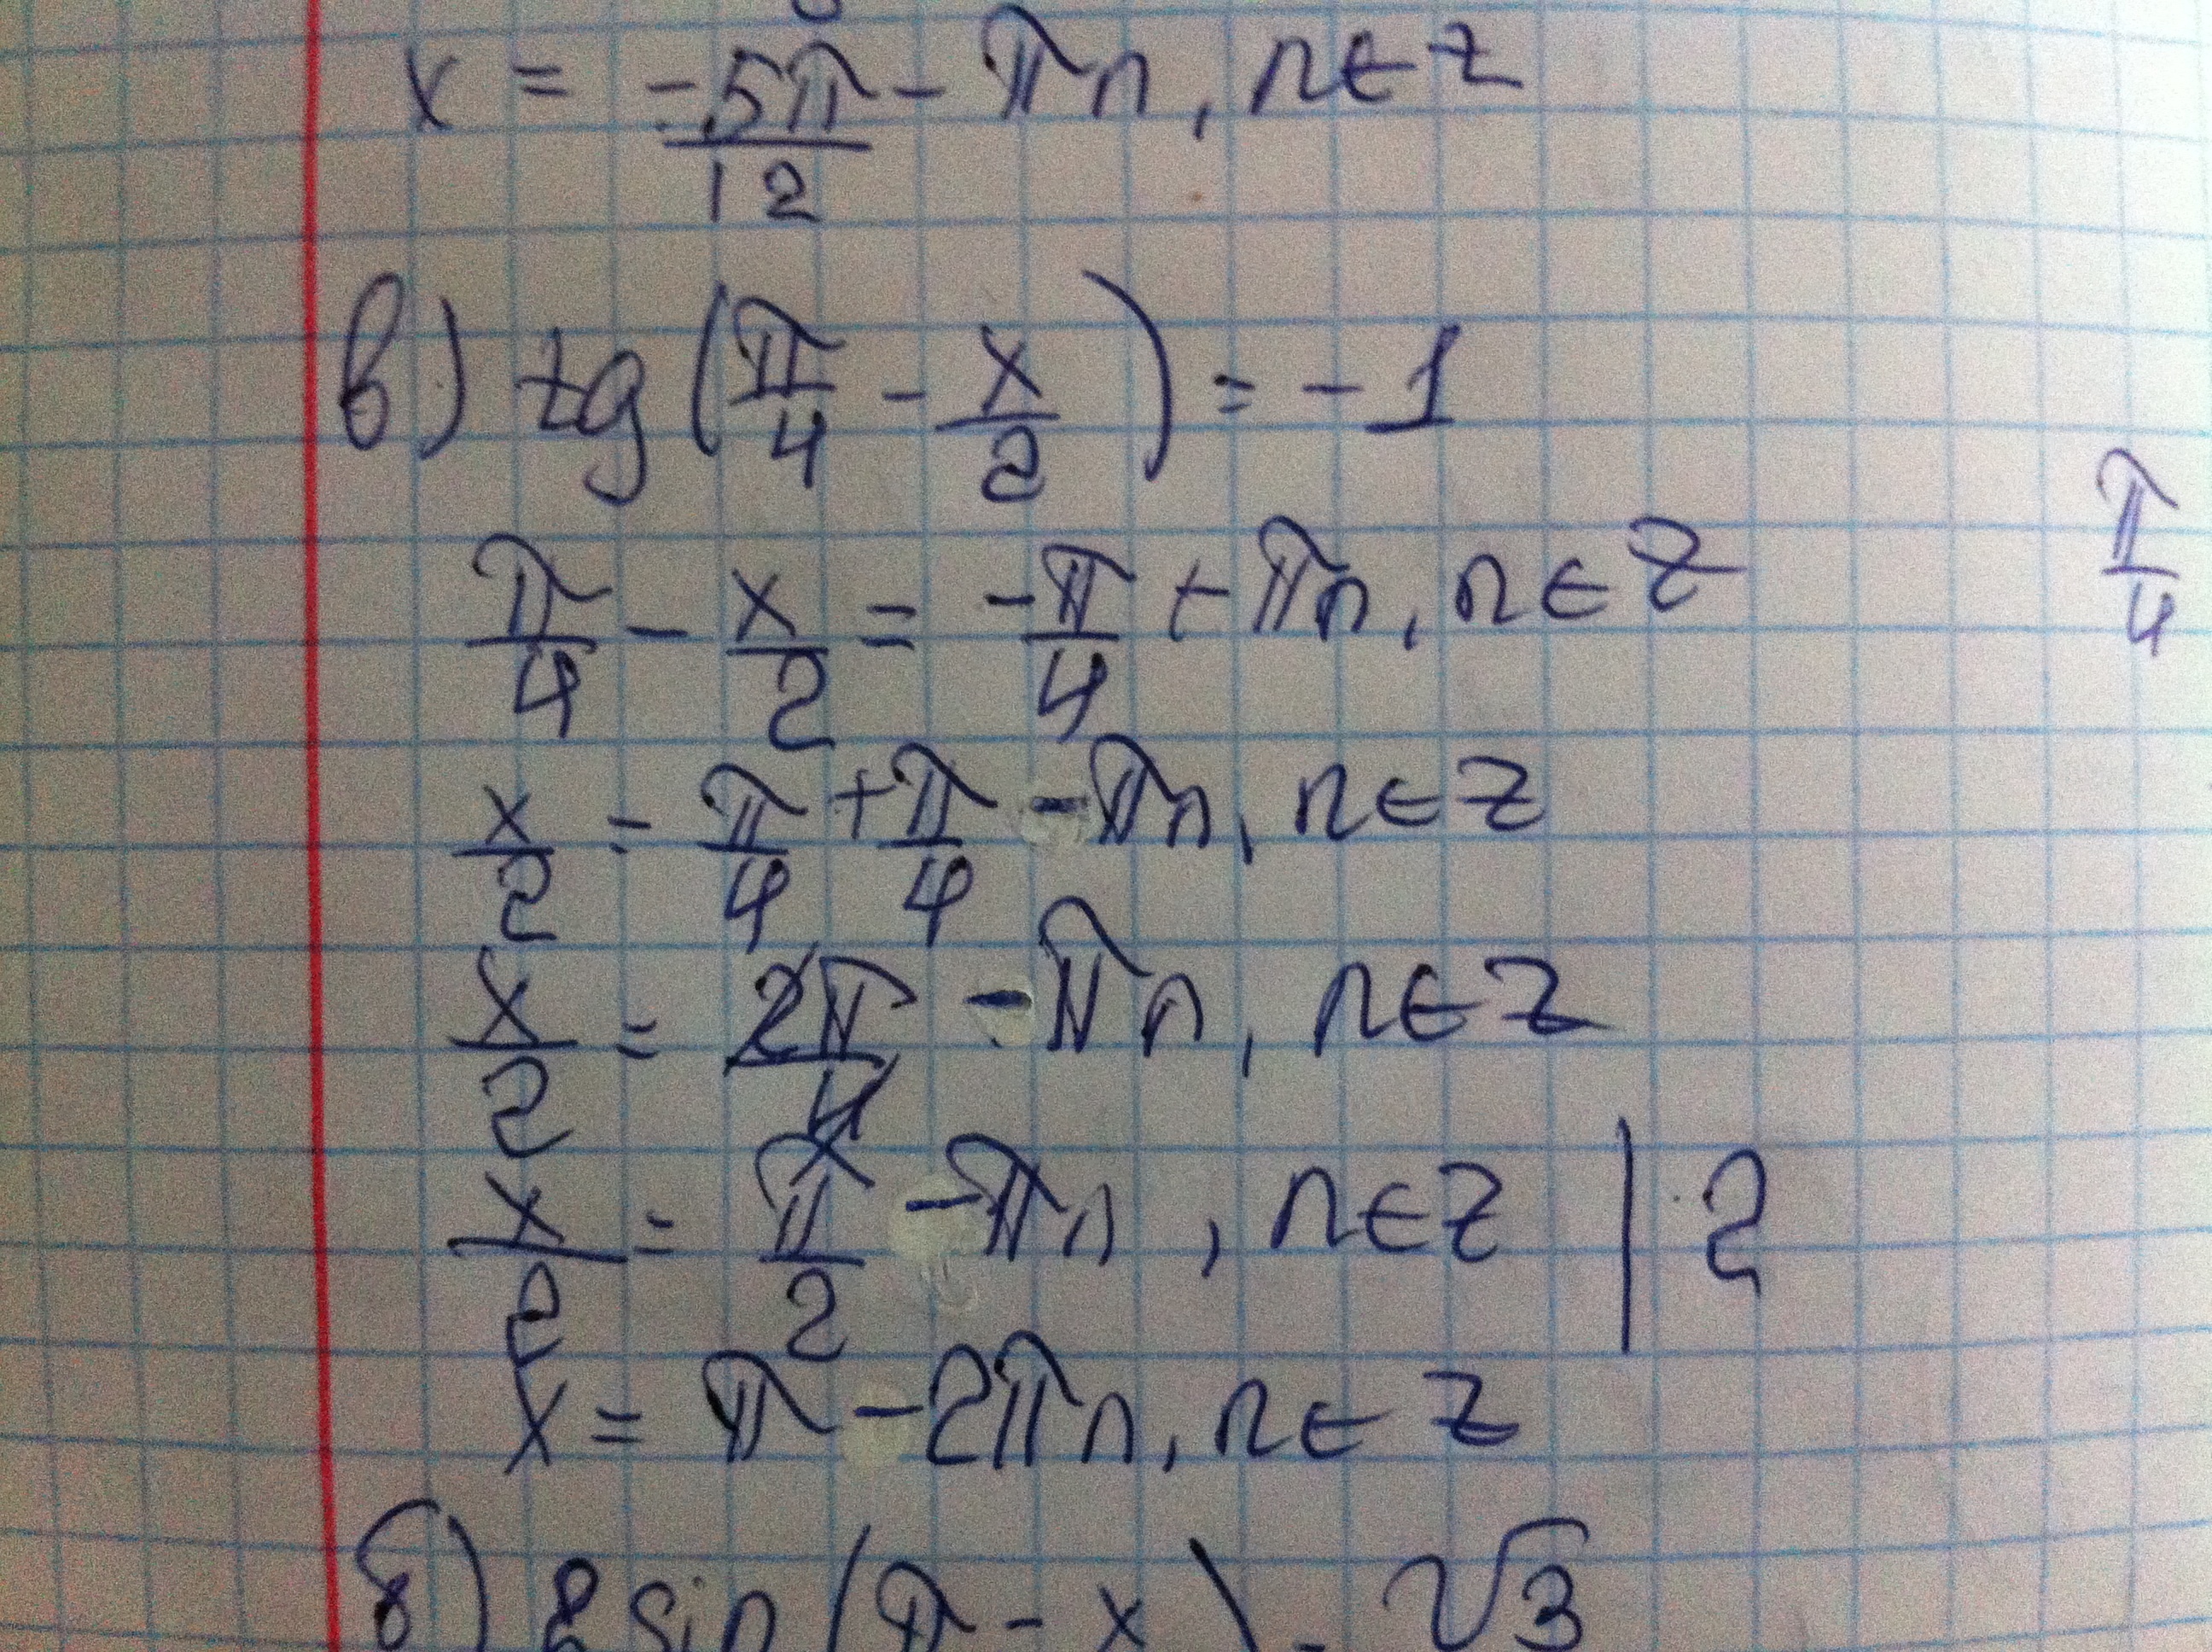 x = -5π/12 - πn, n∈Z
в) tg(π/4 - x/2) = -1
π/4 - x/2 = -π/4 + πn, n∈Z
π/4
x/2 = π/4 + π/4 - πn, n∈Z
x/2 = 2π/4 - πn, n∈Z
x/2 = π/2 - πn, n∈Z | 2
x = π - 2πn, n∈Z
б) 2 sin(π - x) = √3